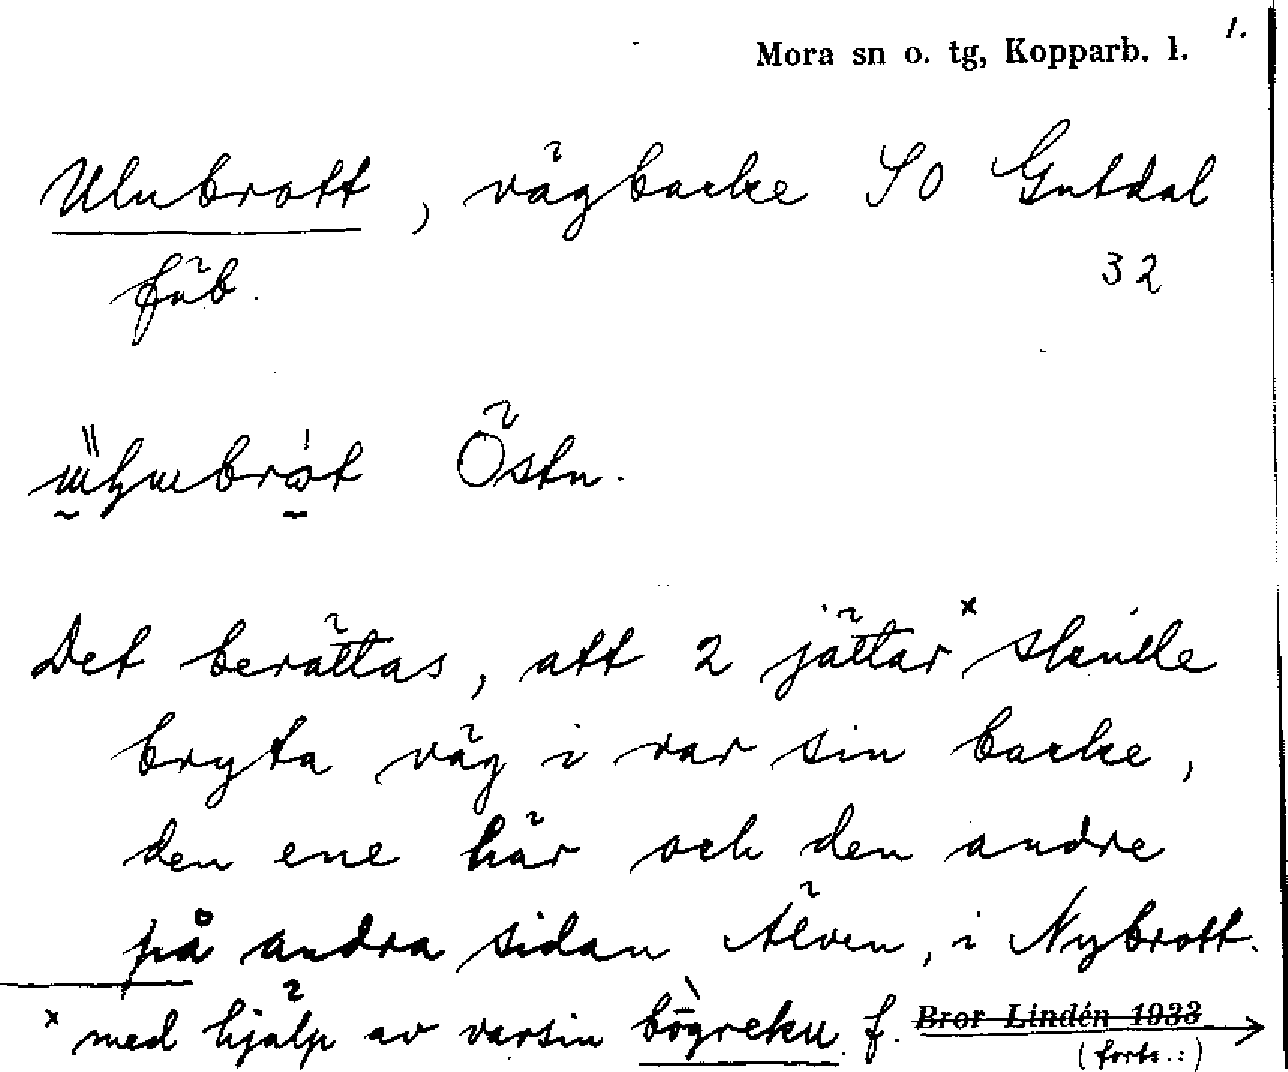 1.
Mora sn o. tg, Kopparb. l.
Ulubrott, vägbacke SO Gutdal
fäb. 32
Östn.
Det berättas, att 2 jättar x skulle
bryta väg i var sin backe,
den ene här och den andre
på andra sidan Älven, i Nybrott.
x med hjälp av varsin bögreku f. Bror Lindén 1933
(forts.:)